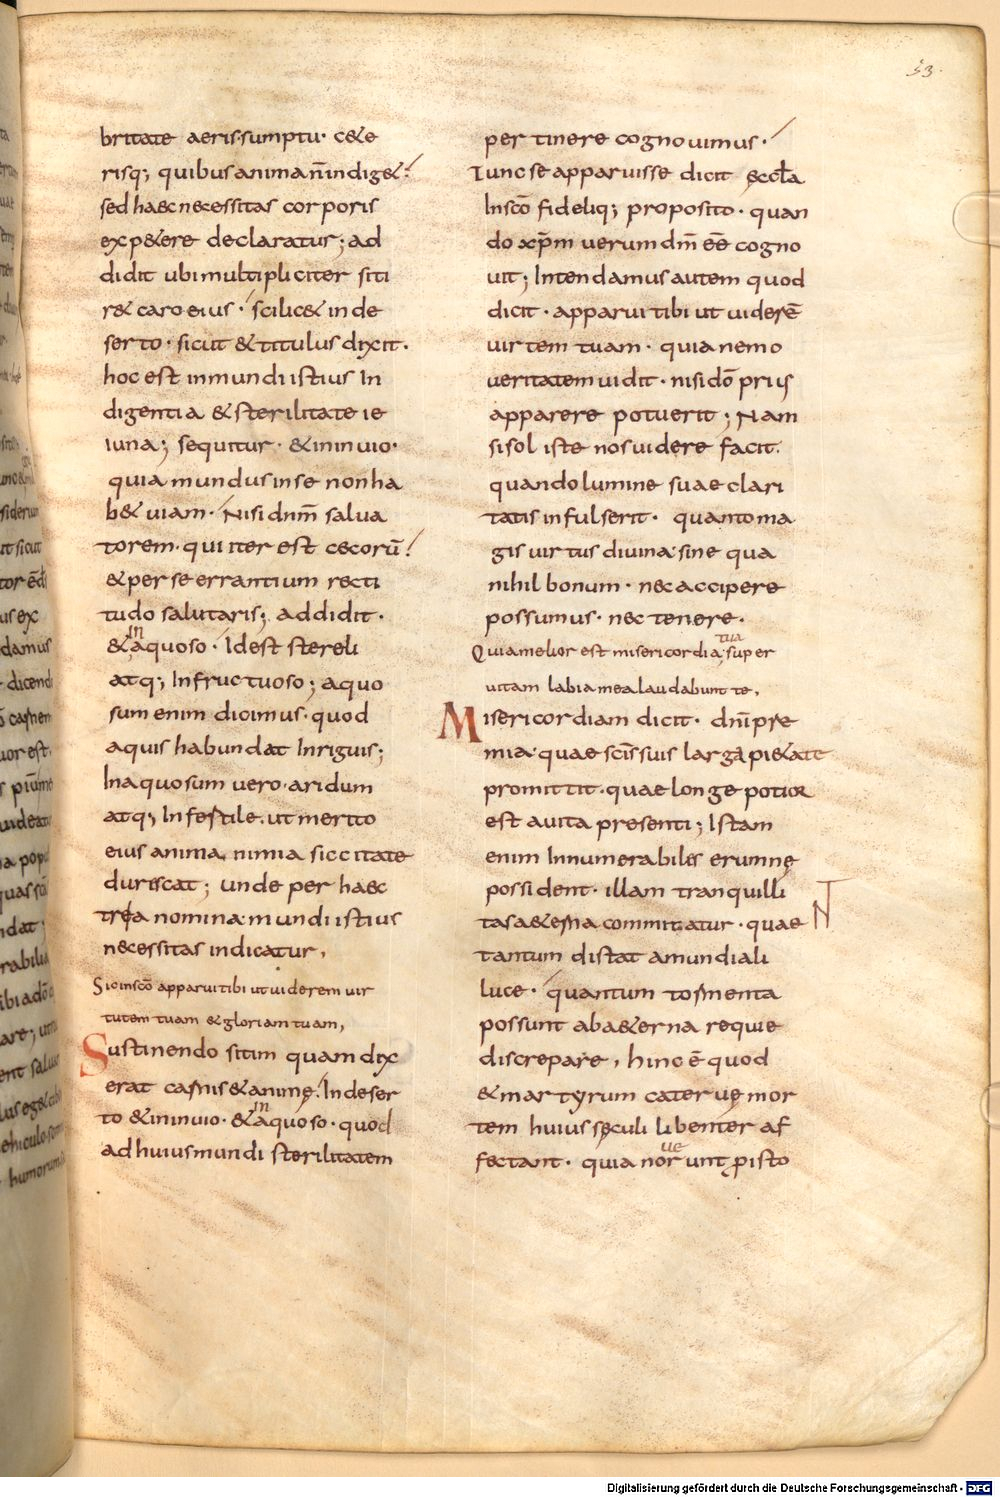 53.
britate aeris sumptu· c&e
risq; quibus anima n̄ indig&·
sed haec necessitas corporis
exp&ere declaratur; ad
didit ubi multipliciter siti
r& caro eius· scilic& in de
serto· sicut & titulus dixit·
hoc est in mundi istius In
digentia & sterilitate ie
iuna; sequitur· & in inuio·
quia mundus in se non ha
b& uiam· Nisi dn̄m salua
torem· qui iter est cecorū·
& per se errantium recti
tudo salutaris; addidit·
& in aquoso· Id est stereli
atq; Infructuoso; aquo
sum enim dicimus· quod
aquis habundat Inriguis;
Inaquosum uero· aridum
atq; Infestile. ut merito
eius anima, nimia siccitate
durescat; unde per haec
tria nomina· mundi istius
necessitas indicatur,
Sic in scō apparui tibi ut uiderem uir
tutem tuam & gloriam tuam,
Sustinendo sitim quam dix
erat carnis & animę· In deser
to & in inuio· & in aquoso· quod
ad huius mundi sterilitatem
pertinere cognouimus·
Tunc se apparuisse dicit eccła
In scō fideliq; proposito· quan
do xp̄m uerum dn̄m eē cogno
uit; Intendamus autem quod
dicit· apparui tibi ut uiderē
uirtem tuam· quia nemo
ueritatem uidit· nisi dō prius
apparere potuerit; Nam
si sol iste nos uidere facit·
quando lumine suae clari
tatis infulserit· quanto ma
gis uirtus diuina· sine qua
nihil bonum· nec accipere
possumus· nec tenere·
Quia melior est misericordia tua super
uitam labia mea laudabunt te,
Misericordiam dicit· dn̄i pre
mia· quae scīs suis larga pi&ate
promittit· quae longe potior
est a uita presenti; Istam
enim Innumerabiles erumnę
possident· illam tranquilli
tas a&erna commitatur· quae
tantum distat a mundiali
luce· quantum tormenta
possunt ab a&erna requie
discrepare, hinc ē quod
& martyrum cateruę mor
tem huius sęculi libenter af
fectant· quia norunt ue p̱ isto
Digitalisierung gefördert durch die Deutsche Forschungsgemeinschaft - DFG